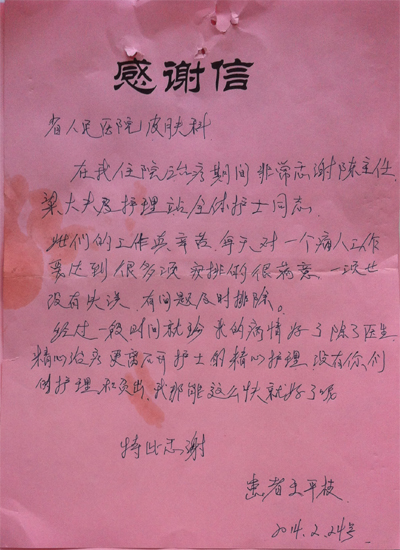 感谢信
省人民医院皮肤科
在我住院治疗期间非常感谢陈主任
梁大夫及护理站全体护士同志、
她们的工作真辛苦,每天对一个病人工作
要达到很多项 安排的很满意,一项也
没有失误,有问题及时排除。
经过一段时间就诊 我的病情好了除了医生
精心治疗更离不开护士的精心护理,没有你们
的护理和负出,我那能这么快就好了呢
特此感谢
患者王平枝
2014.2.24号